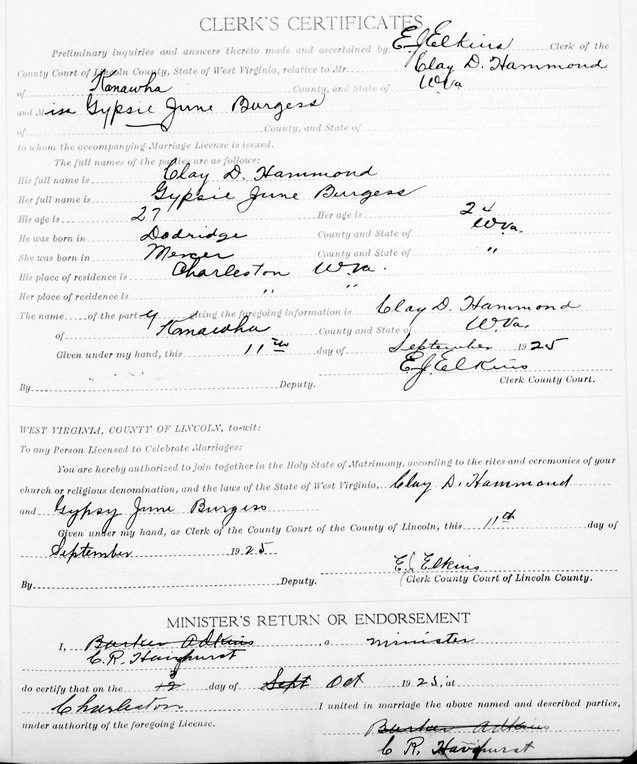 CLERK'S CERTIFICATES
Preliminary inquiries and answers thereto made and ascertained by E J Elkins Clerk of the
County Court of Lincoln County, State of West Virginia, relative to Mr. Clay D. Hammond
of Kanawha County, and State of W.Va
and Miss Gypsie June Burgess
of County, and State of
to whom the accompanying Marriage License is issued.
The full names of the parties are as follows:
His full name is Clay D. Hammond
Her full name is Gypsie June Burgess
His age is 27 Her age is 24
He was born in Dodridge County and State of W.Va.
She was born in Mercer County and State of "
His place of residence is Charleston W.Va.
Her place of residence is " "
The name of the party giving the foregoing information is Clay D. Hammond
of Kanawha County and State of W.Va.
Given under my hand, this 11th day of September 1925
E.J. Elkins
By Deputy. Clerk County Court.
WEST VIRGINIA, COUNTY OF LINCOLN, to-wit:
To any Person Licensed to Celebrate Marriages:
You are hereby authorized to join together in the Holy State of Matrimony, according to the rites and ceremonies of your
church or religious denomination, and the laws of the State of West Virginia, Clay D. Hammond
and Gypsy June Burgess
Given under my hand, as Clerk of the County Court of the County of Lincoln, this 11th day of
September 1925
E J Elkins
By Deputy. Clerk County Court of Lincoln County.
MINISTER'S RETURN OR ENDORSEMENT
I, Barker Adkins, a minister
C.R. Havighurst
do certify that on the 12 3 day of Sept Oct 1925, at
Charleston I united in marriage the above named and described parties,
under authority of the foregoing License.
Barker Adkins
C R. Havighurst